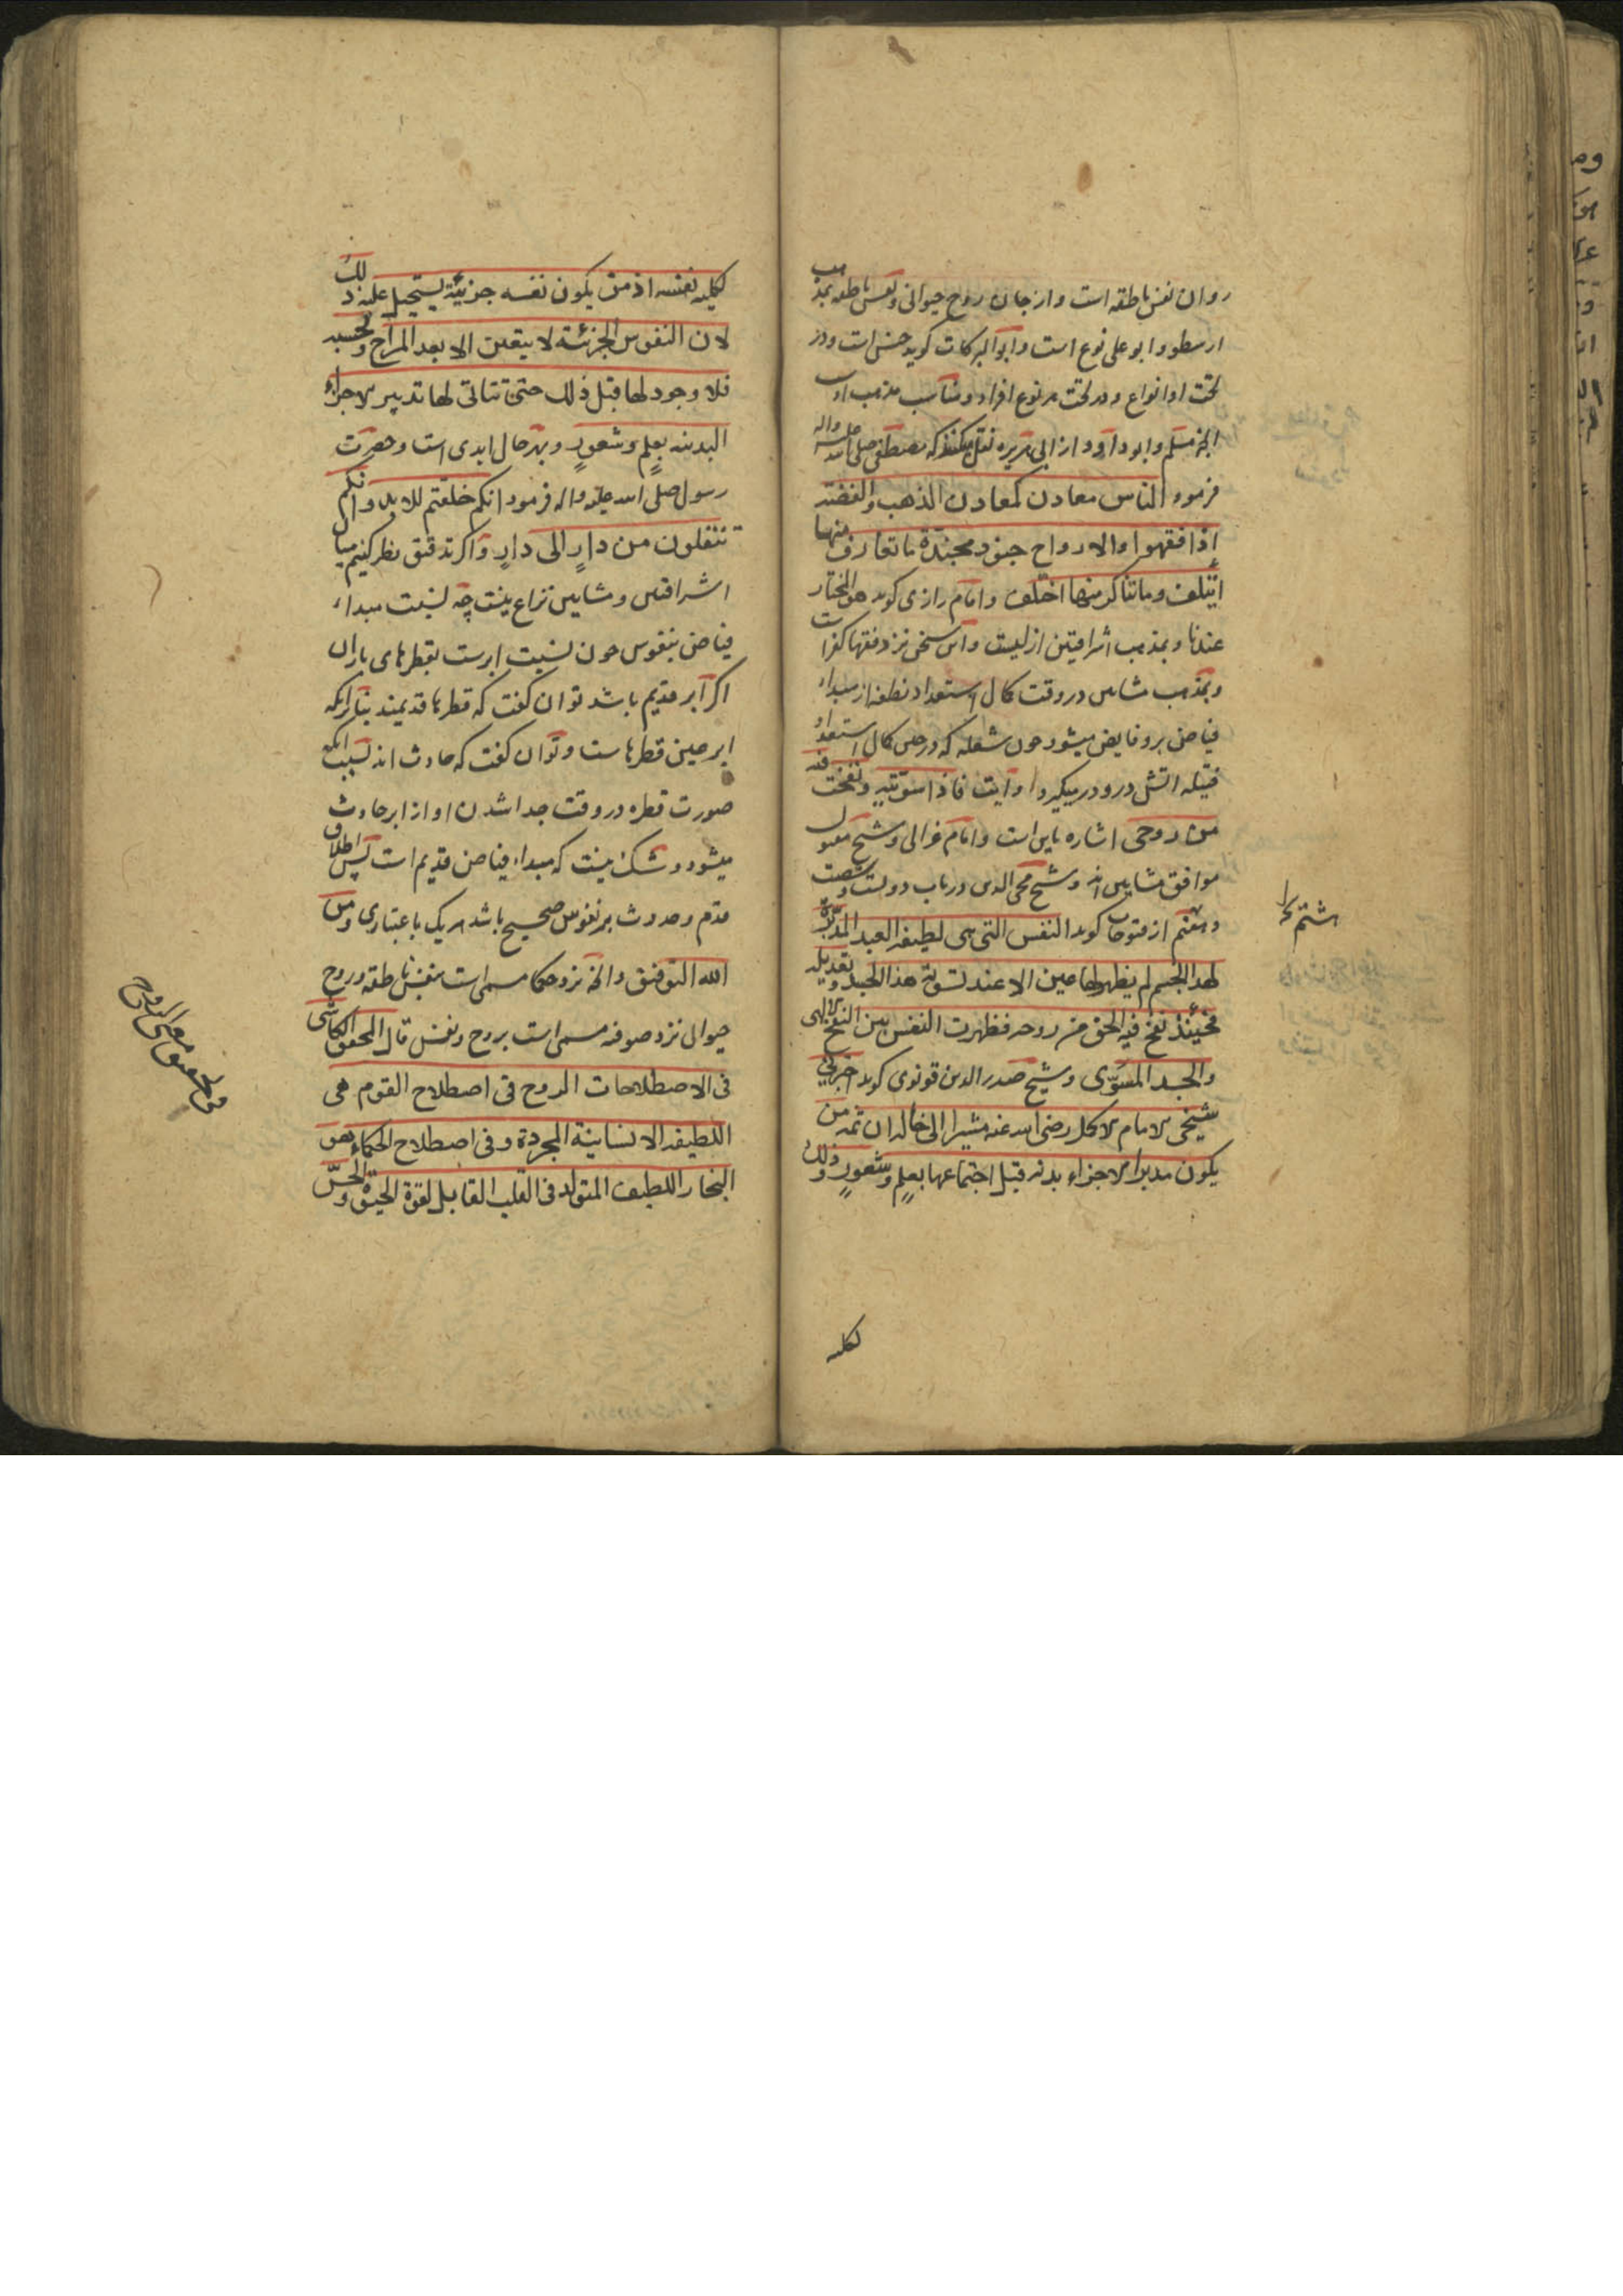 روان نفس ناطقه است و از جان روح حیوانی و نفس ناطقه بمذهب
ارسطو و ابو علی نوع است و ابو البرکات کوید جنس است و در
تحت او انواع و در تحت هر نوع افراد و مناسب مذهب اوست
انچه مسلم و ابو داود از ابی هریره نقل میکنند که مصطفی صلی الله علیه واله
فرموده الناس معادن کمعادن الذهب والفضة
اذا فقهوا والارواح جنود مجندة ما تعارف منها
ائتلف وما تناکر منها اختلف و امام رازی کوید هو المختار
عندنا و بمذهب اشراقیین ازلیست و این سخن نزد فقها کفر است
و بمذهب مشایین در وقت کمال استعداد نطفه از مبداء
فیاض برو فایض میشود چون شعله که در حین کمال استعداد
فتیله اتش درو در میکیرد و ایت فاذا سویته و نفخت فیه
من روحی اشاره باین است و امام غزالی و شیخ مقتول
موافق مشایین اند و شیخ محی الدین در باب دویست و شصت
و هفتم از فتوحات کوید النفس التی هی لطیفة العبد المدبرة
لهذا الجسم لم یظهر لها عین الا عند تسویة هذا الجسد و تعدیله
فحینئذ نفخ فیه الحق من روحه فظهرت النفس بین النفخ الالهی
والجسد المسوّی و شیخ صدر الدین قونوی کوید اخبرنی
شیخی الامام الاکمل رضی الله عنه مشیرا الی حاله ان ثمة من
یکون مدبرا لاجزاء بدنه قبل اجتماعها بعلمٍ وشعورٍ وذلک
لکلیه
ششم
لکلیة نفسه اذ من یکون نفسه جزئیة یستحیل علیه ذلک
لان النفوس الجزئیة لا یتعین الا بعد المزاج وبحسبه
فلا وجود لها قبل ذلک حتی تتاتی لها تدبیر لاجزاء
البدنیه بعلمٍ وشعورٍ و بهر حال ابدی است و حضرت
رسول صلی الله علیه واله فرموده انکم خلقتم للابد وانکم
تنتقلون من دارٍ الی دارٍ و اکر بتدقیق نظر کنیم میان
اشراقیین و مشایین نزاع نیست چه نسبت مبداء
فیاض بنفوس چون نسبت ابرست بقطرهای باران
اکر ابر قدیم باشد توان کفت که قطرها قدیمند بنابر انکه
ابر عین قطرهاست و توان کفت که حادث اند بسبب انکه
صورت قطره در وقت جدا شدن او از ابر حادث
میشود و شک نیست که مبداء فیاض قدیم است پس اطلاق
قدم و حدوث بر نفوس صحیح باشد هر یک باعتباری ومن
الله التوفیق و انچه نزد حکما مسمی است بنفس ناطقه و روح
حیوانی نزد صوفیه مسمی است بروح و نفس قال المحقق الکاشی
فی الاصطلاحات الروح فی اصطلاح القوم هی
اللطیفة الانسانیة المجردة وفی اصطلاح الحکماء هو
البخار اللطیف المتولد فی القلب القابل لقوة الحیوة والحسّ
فی تحقیق معنی الروح